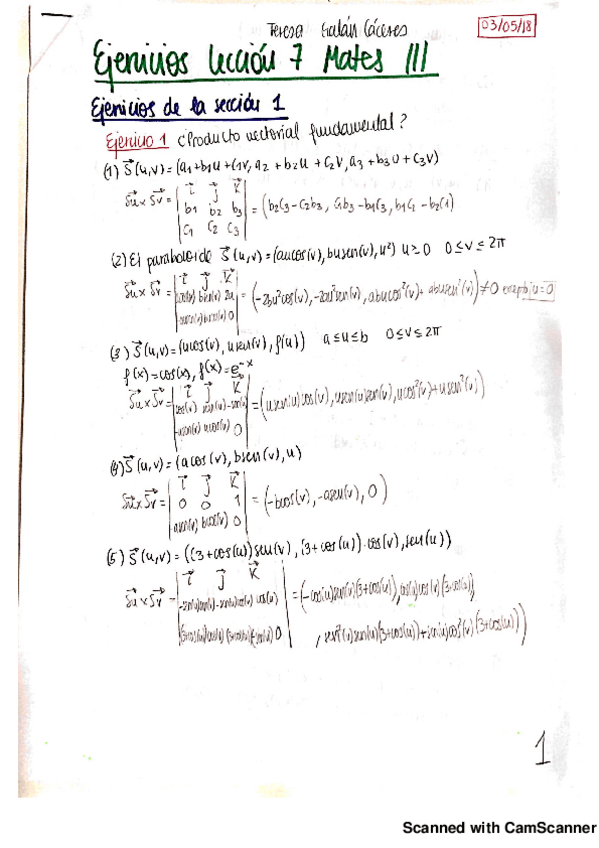 Teresa Galán Cáceres
03/05/18
Ejercicios lección 7 Mates III
Ejercicios de la sección 1
Ejercicio 1 ¿Producto vectorial fundamental?
(1) S⃗(u,v)=(a1+b1u+c1v, a2+b2u+c2v, a3+b3u+c3v)
S⃗u×S⃗v = | i⃗ j⃗ k⃗ |
| b1 b2 b3 | = (b2c3-c2b3, c1b3-b1c3, b1c2-b2c1)
| c1 c2 c3 |
(2) El paraboloide S⃗(u,v)=(aucos(v), busen(v), u²) u≥0 0≤v≤2π
S⃗u×S⃗v = | i⃗ j⃗ k⃗ |
| acos(v) bsen(v) 2u | = (-2bu²cos(v), -2au²sen(v), abucos²(v)+abusen²(v)) ≠0 excepto u=0
| -ausen(v) bucos(v) 0 |
(3) S⃗(u,v)=(ucos(v), usen(v), f(u)) a≤u≤b 0≤v≤2π
f(x)=cos(x), f(x)=e^-x
S⃗u×S⃗v = | i⃗ j⃗ k⃗ |
| cos(v) sen(v) -sen(u) | = (usen(u)cos(v), usen(u)sen(v), ucos²(v)+usen²(v))
| -usen(v) ucos(v) 0 |
(4) S⃗(u,v)=(acos(v), bsen(v), u)
S⃗u×S⃗v = | i⃗ j⃗ k⃗ |
| 0 0 1 | = (-bcos(v), -asen(v), 0)
| -asen(v) bcos(v) 0 |
(5) S⃗(u,v)=((3+cos(u))sen(v), (3+cos(u))·cos(v), sen(u))
S⃗u×S⃗v = | i⃗ j⃗ k⃗ |
| -sen(u)sen(v) -sen(u)cos(v) cos(u) | = (-cos(u)sen(v)(3+cos(u)), cos(u)cos(v)(3+cos(u))
| (3+cos(u))cos(v) (3+cos(u))(-sen(v)) 0 | , sen²(v)sen(u)(3+cos(u))+sen(u)cos²(v)(3+cos(u)))
1
Scanned with CamScanner